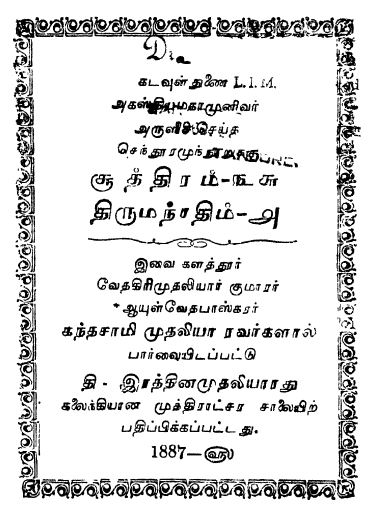 கடவுள் துணை
அகஸ்தியமகாமுனிவர்
அருளிச்செய்த
செந்தூரமுந்நூறுக்கு
சூத்திரம்-
திருமந்திரம்-௮
இவை களத்தூர்
வேதகிரிமுதலியார் குமாரர்
* ஆயுள்வேதபாஸ்கரர்
கந்தசாமி முதலியா ரவர்களால்
பார்வையிடப்பட்டு
தி - இரத்தினமுதலியாரது
கலைக்கியான முத்திராட்சர சாலையிற்
பதிப்பிக்கப்பட்டது.
1887—௵